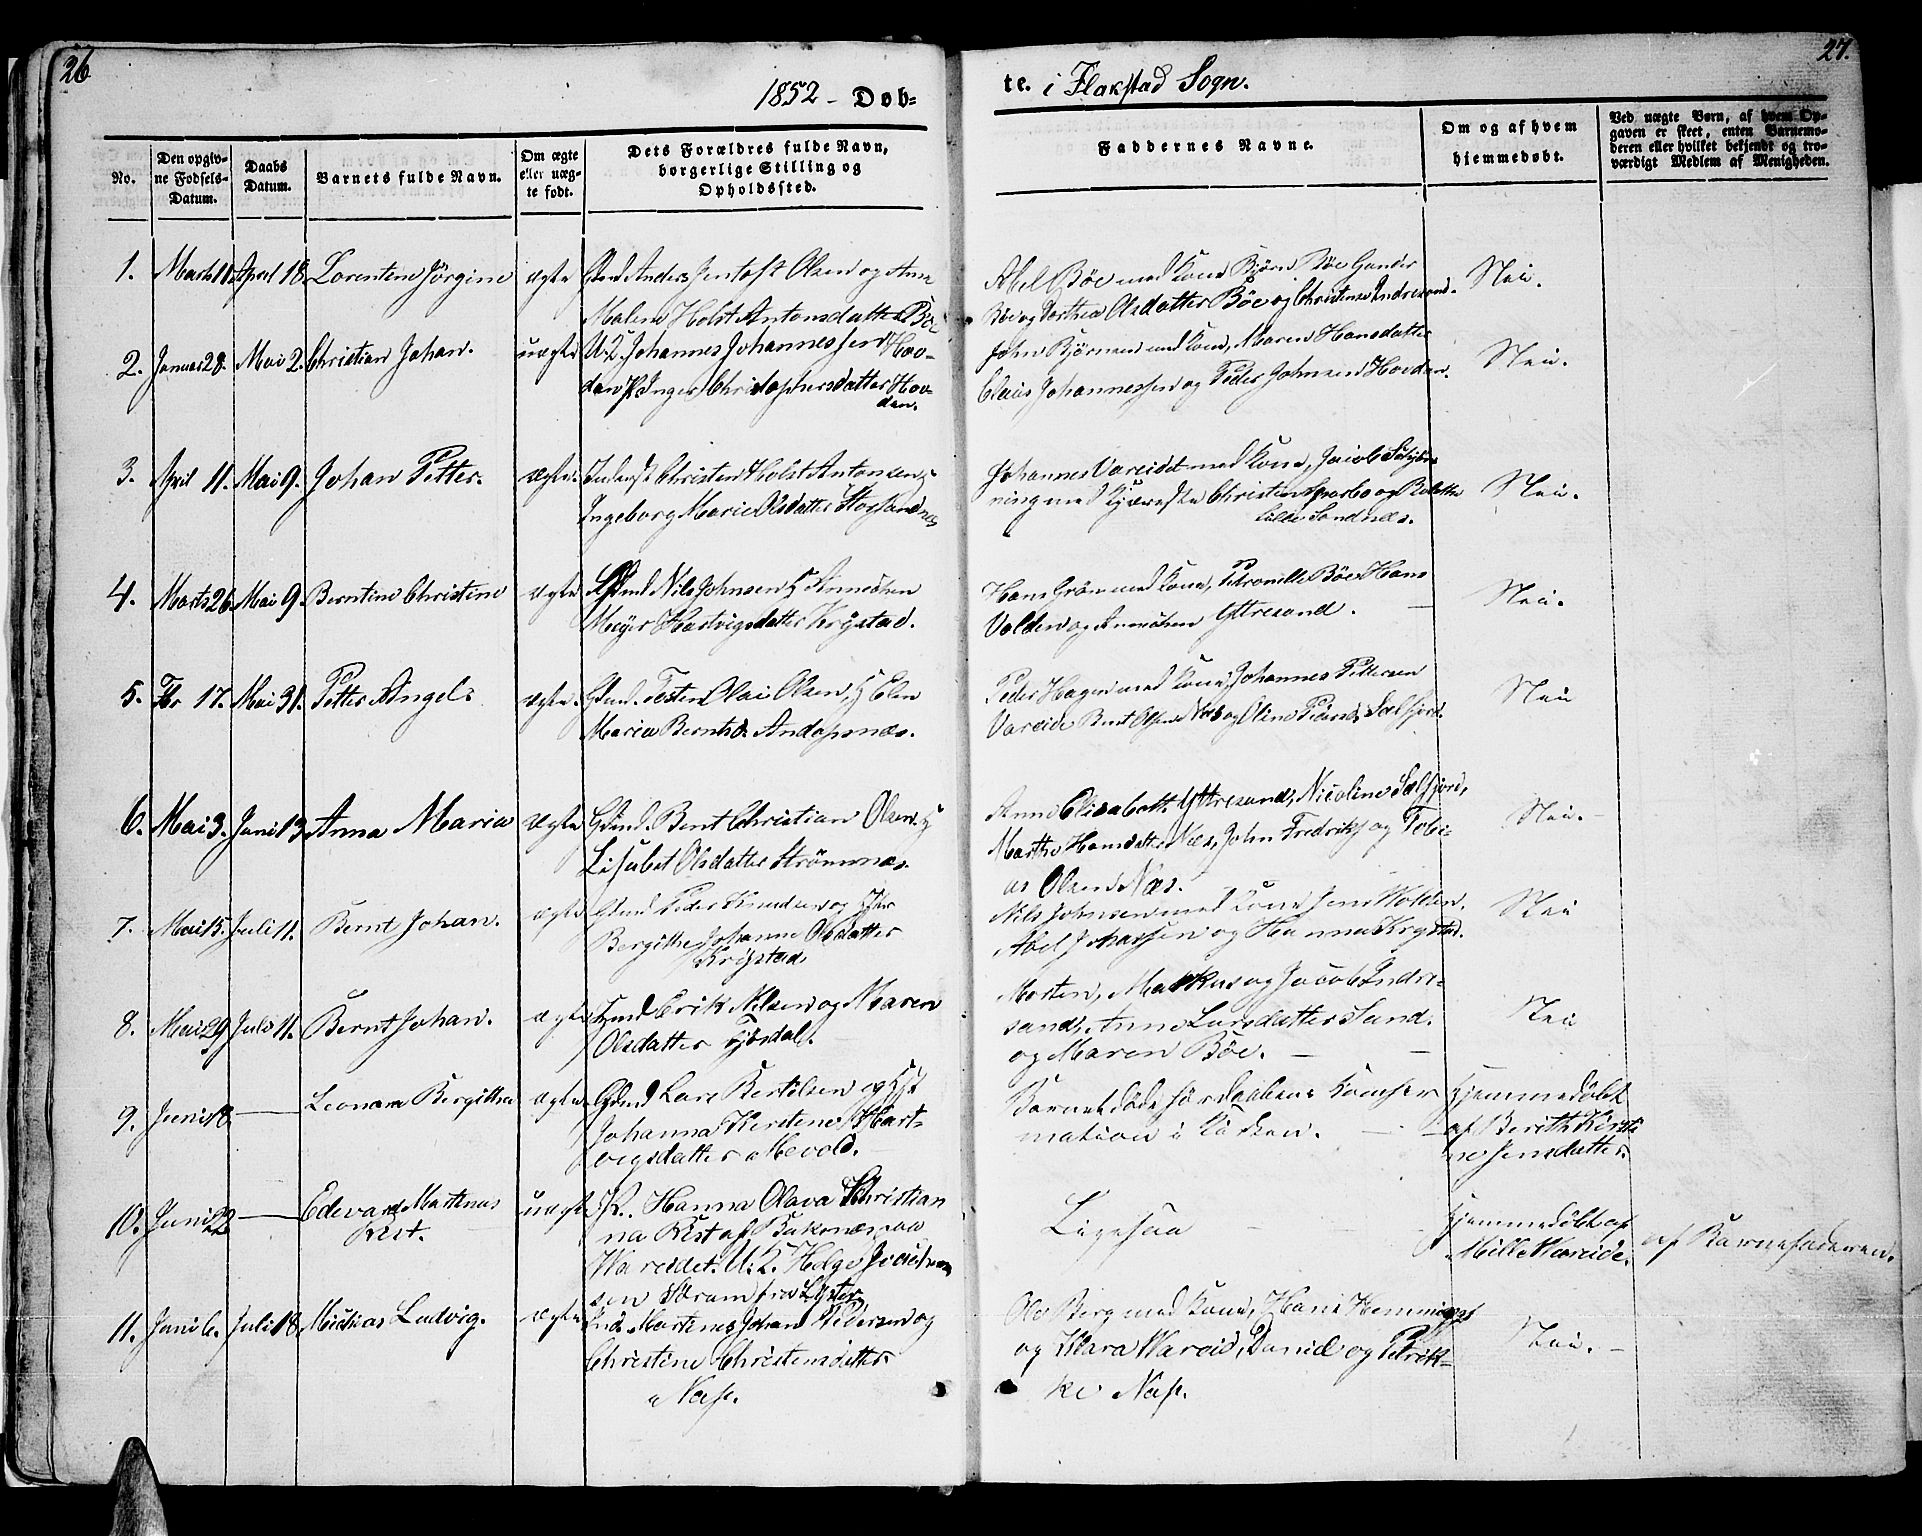 26
27.
1852 - Døb-
te. i Flakstad Sogn.
No.
Den opgiv-
ne Fødsels-
Datum.
Daabs
Datum.
Barnets fulde Navn.
Om ægte
eller uæg-
te født.
Dets Forældres fulde Navn,
borgerlige Stilling og
Opholdssted.
Faddernes Navne.
Om og af hvem
hjemmedøbt.
Ved uægte Børn, af hvem Op-
gaven er skeet, enten Barnemo-
deren eller hvilket bekjendt og tro-
værdigt Medlem af Menigheden.
1. Marts 11. April 18. Lorentine Jørgine ægte Gmd Anders Jentoft Olsen og Ane
Malene Holst Antonsdatter Böe
Abel Böe med Kone Björn Böe
Böe og Dorthea Olsdatter Böe og Christense Andresend.
Nei.
2. Januar 28. Mai 2. Christian Johan. uægte U. K. Johannes Johannessen Hov-
den P. Inger Christophersdatter Hov-
den.
John Björnsen med Kone, Maren Hansdatter
Claus Johannessen og Peder Johnsen Hovden.
Nei.
3. April 11. Mai 9. Johan Petter. ægte. Christen Holst Antonsen &
Ingeborg Marie Olsdatter
Johannes Vareidet med Kone, Jacob
med Kjæreste Christen og
Lille Sandnæs.
Nei.
4. Marts 26. Mai 9. Berntine Christine ægte Gmd Nils Johnsen & Annichen
Meyer Hartvigsdatter Krystad.
Hans Grøn med Kone, Petronelle Böe Hans
Volden og Annichen Yttresand.
Nei.
5. 17. Mai 31. Petter Angel. ægte. Gmd. Olai Olsen, & Elen
Maria Berntsd. Andopsnæs.
Peder Hagen med Kone, Johannes Pettersen
Vareide Bernt Olsen Næs og Oline Selfjord.
Nei
6. Mai 3. Juni 13. Anna Maria ægte Gmd. Bent Christian Olsen &
Lisabet Olsdatter Strömnæs.
Anne Elisabeth Yttresand, Nicoline Selfjord,
Marthe Hansdatter Næs, John Fredriks og Tobi-
as Olsen Næs.
Nei.
7. Mai 15. Juli 11. Bernt Johan. ægte Gmd Peder Knudsen og
Bergithe Johanne Olsdatter
Krystad.
Nils Johnsen med Kone Jens Wolden.
Abel og Hanna Krystad.
Nei
8. Mai 29 Juli 11. Bernt Johan. ægte Gmd Erik Nilsen og Maren
Olsdatter
Morten, Markus og Jacob Indre-
sand, Anne Larsdatter Sand.
og Maren Böe.
Nei
9. Juni 18. — Leonara Bergitha ægte Gmd Lars Bertelsen og
Johanna Kerstine Hart-
vigsdatter Mevold.
Barnet døde før Daabens Komfer
mation i Kirken.
Hjemmedøbt
af Berith Kirsti-
ne Jensdatter.
10. Juni 22 — Edevard Martenus
Rist.
uægte P. Hanna Olava Christian
na Rist af paa
Wareidet. U. K. Helge
sen Strøm fra
Ligesaa
Hjemmedøbt af
Mille Wareide.
af Barnefaderen.
11. Juni 6. Juli 18. Mickias Ludvig. ægte Martenus Johan Pedersen og
Christine Christensdatter
Nap.
Ole Berg med Kone, Hans Hemmings
og Klara Wareid, Daniel og Petrik-
ke Nap.
Nei.